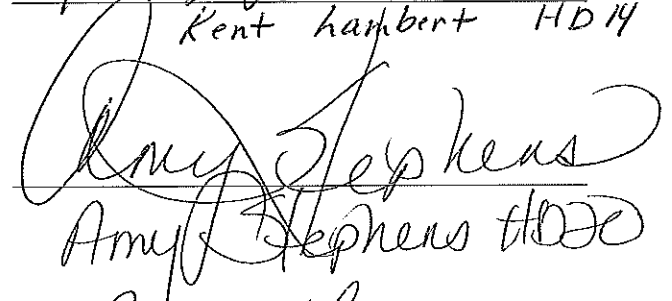 Kent Lambert HD 14
Amy Stephens
Amy Stephens HD20